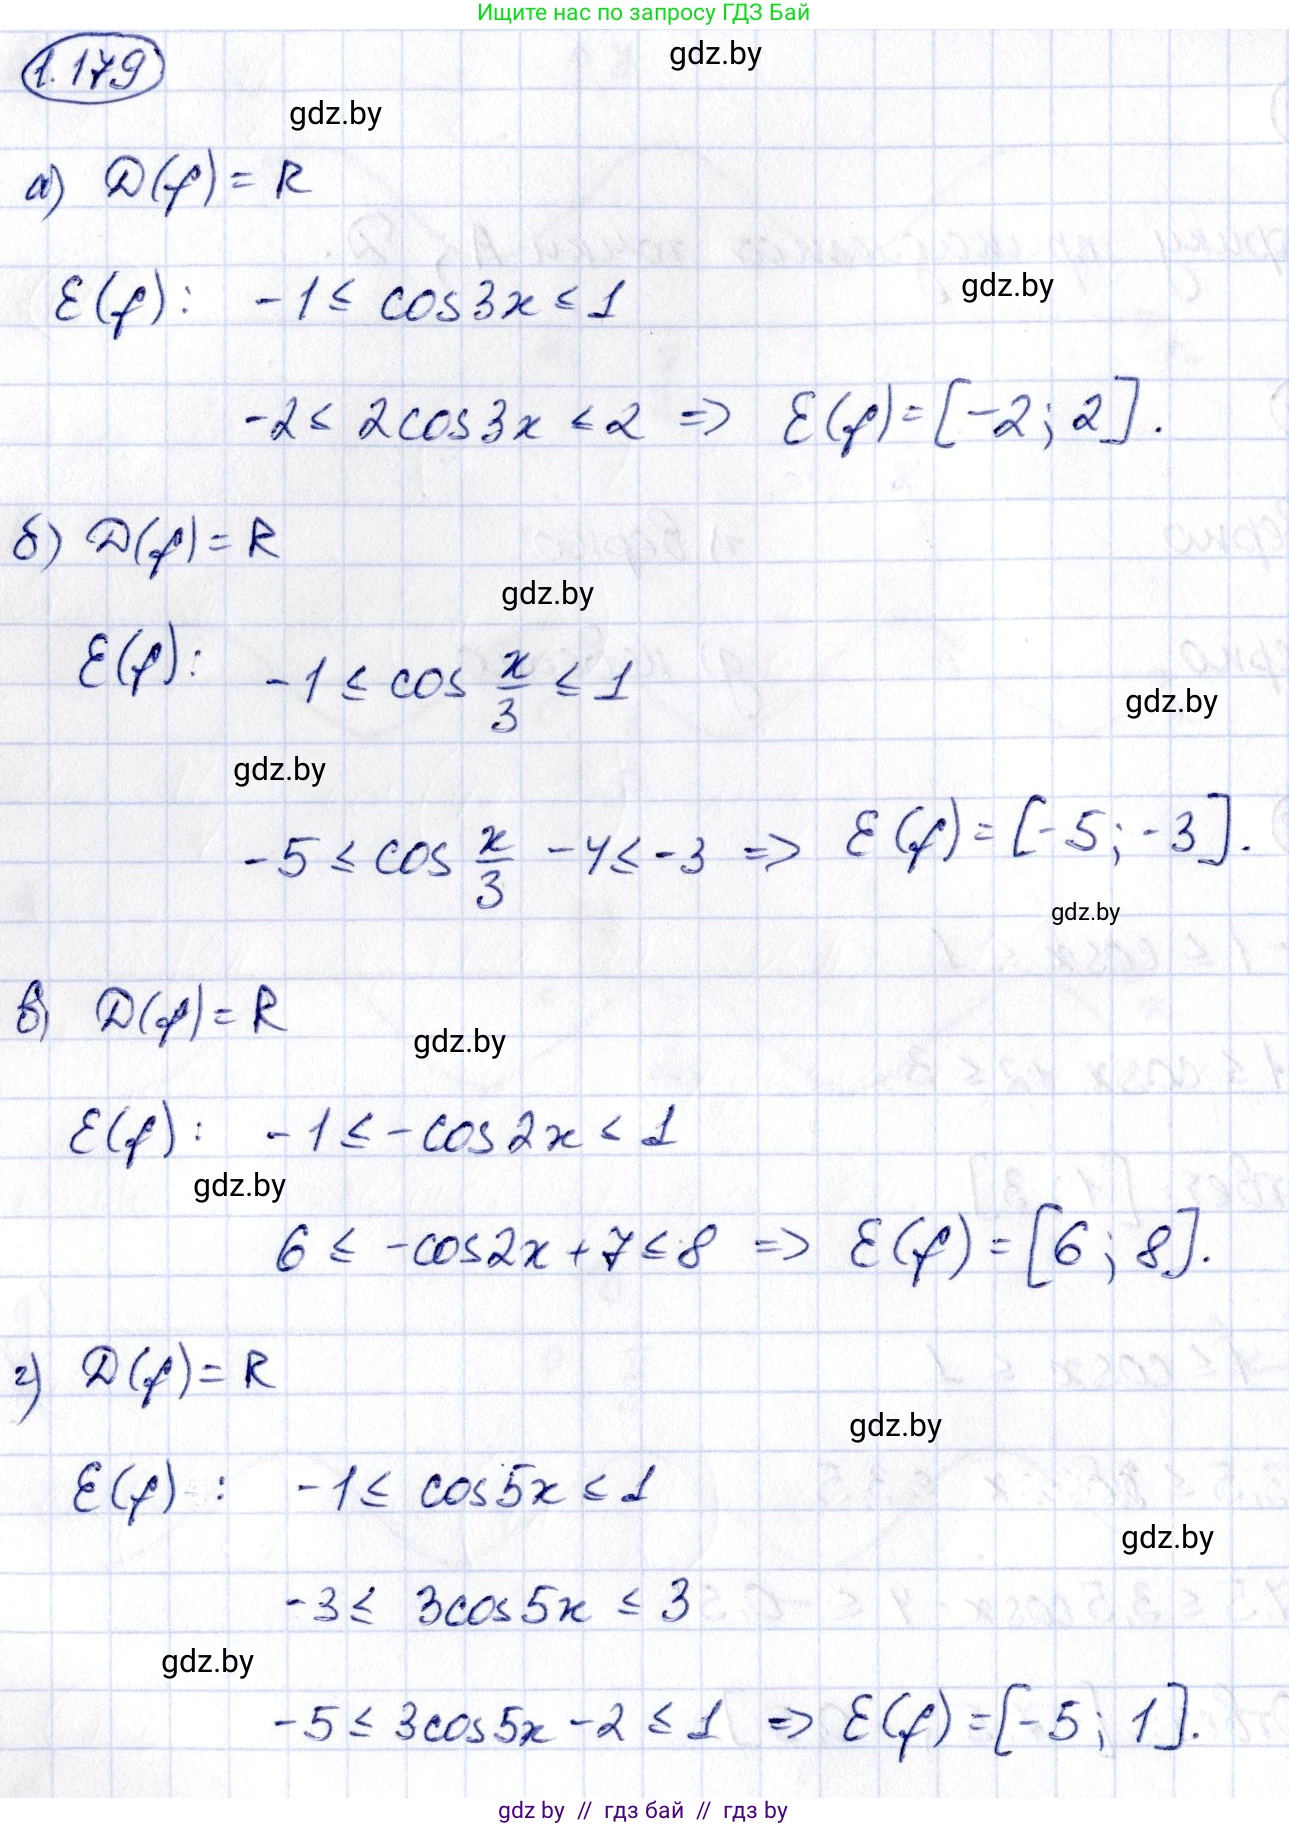 Ищите нас по запросу ГДЗ Бай
1.179
gdz.by
gdz.by
а) D(f) = R
E(f): -1 ≤ cos3x ≤ 1
gdz.by
-2 ≤ 2cos3x ≤ 2 => E(f) = [-2; 2].
б) D(f) = R
gdz.by
E(f): -1 ≤ cos x/3 ≤ 1
gdz.by
gdz.by
-5 ≤ cos x/3 - 4 ≤ -3 => E(f) = [-5; -3].
gdz.by
в) D(f) = R
gdz.by
E(f): -1 ≤ -cos2x ≤ 1
gdz.by
6 ≤ -cos2x + 7 ≤ 8 => E(f) = [6; 8].
г) D(f) = R
gdz.by
E(f): -1 ≤ cos5x ≤ 1
gdz.by
-3 ≤ 3cos5x ≤ 3
gdz.by
-5 ≤ 3cos5x - 2 ≤ 1 => E(f) = [-5; 1].
gdz by // гдз бай // гдз by